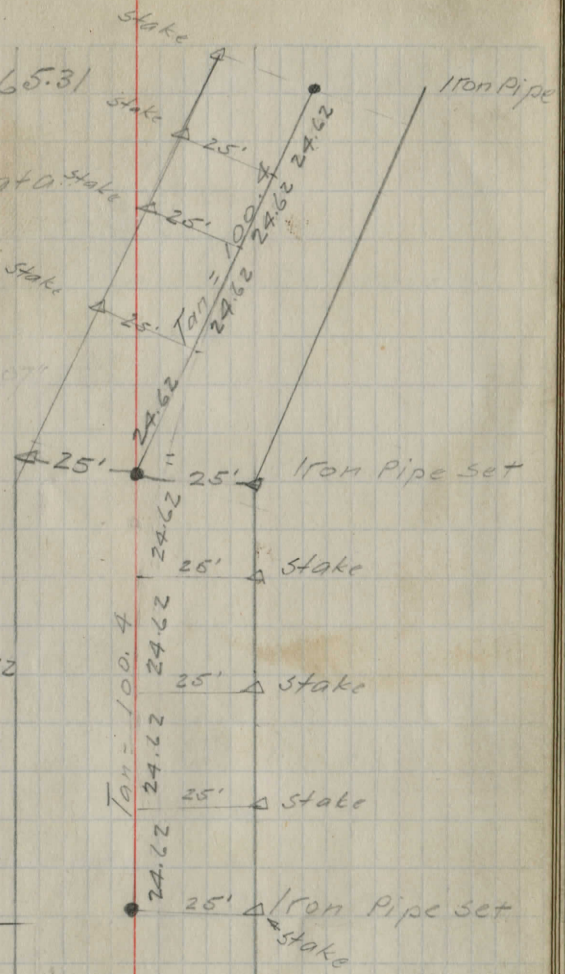 stake
65.31
Iron Pipe
stake
25'
24.62
at a stake
25'
24.62
Tan = 100.4
stake
25'
24.62
24.62
25'
25'
Iron Pipe set
24.62
25'
stake
24.62
Tan = 100.4
25'
stake
24.62
25'
stake
24.62
25'
Iron Pipe set
stake